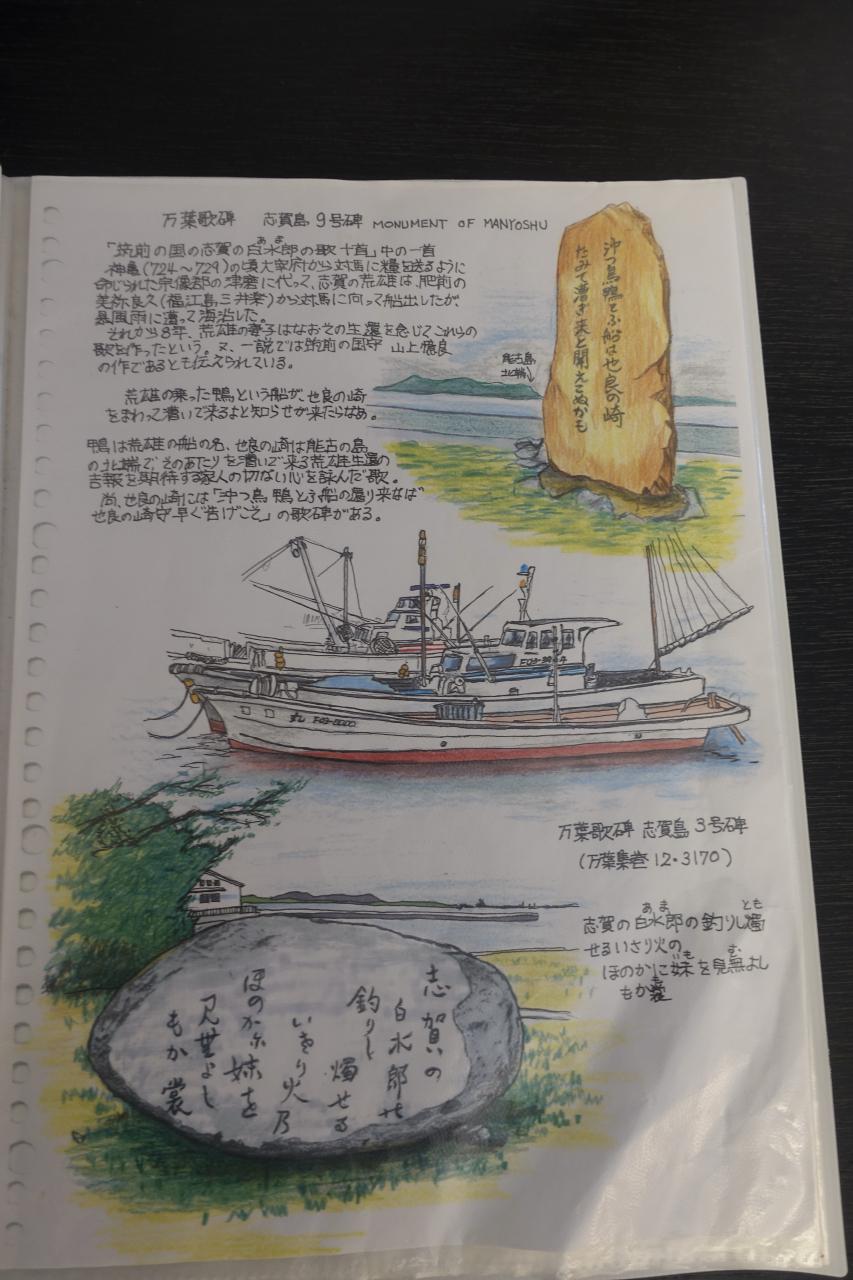 万葉歌碑 志賀島 9号碑 MONUMENT OF MANYOSHU
「筑前の国の志賀の白水郎の歌十首」中の一首
あま
神亀(724〜729)の頃大宰府から対馬に糧を送るように
命じられた宗像部の津磨に代って、志賀の荒雄は、肥前の
美弥良久(福江島三井楽)から対馬に向って船出したが、
暴風雨に遭って海沿した。
それから8年、荒雄の妻子はなおその生還を念じてこれらの
歌を作ったという。又、一説では筑前の国守 山上憶良
の作であるとも伝えられている。
荒雄の乗った鴨という船が、也良の崎
をまわって漕いで来るよと知らせが来たらなぁ。
鴨は荒雄の船の名、也良の崎は能古の島
の北端でそのあたりを漕いで来る荒雄生還の
吉報を期待する家人の切ない心を詠んだ歌。
尚、也良の崎には「沖つ鳥 鴨とふ船の還り来なば
也良の崎守早く告げこそ」の歌碑がある。
能古島
北端
沖つ鳥鴨とふ船は也良の崎
たみて漕ぎ来と聞えこぬかも
丸 FO3-
FO3-
万葉歌碑 志賀島 3号碑
(万葉集巻12・3170)
志賀の白水郎の釣りし燭
あま とも
せるいさり火の
ほのかに妹を見無よし
いも む
もか裳
も
志賀の
白水郎せ
釣りし
燭せる
いさり火乃
ほのか尓
妹を
見無よし
もか裳